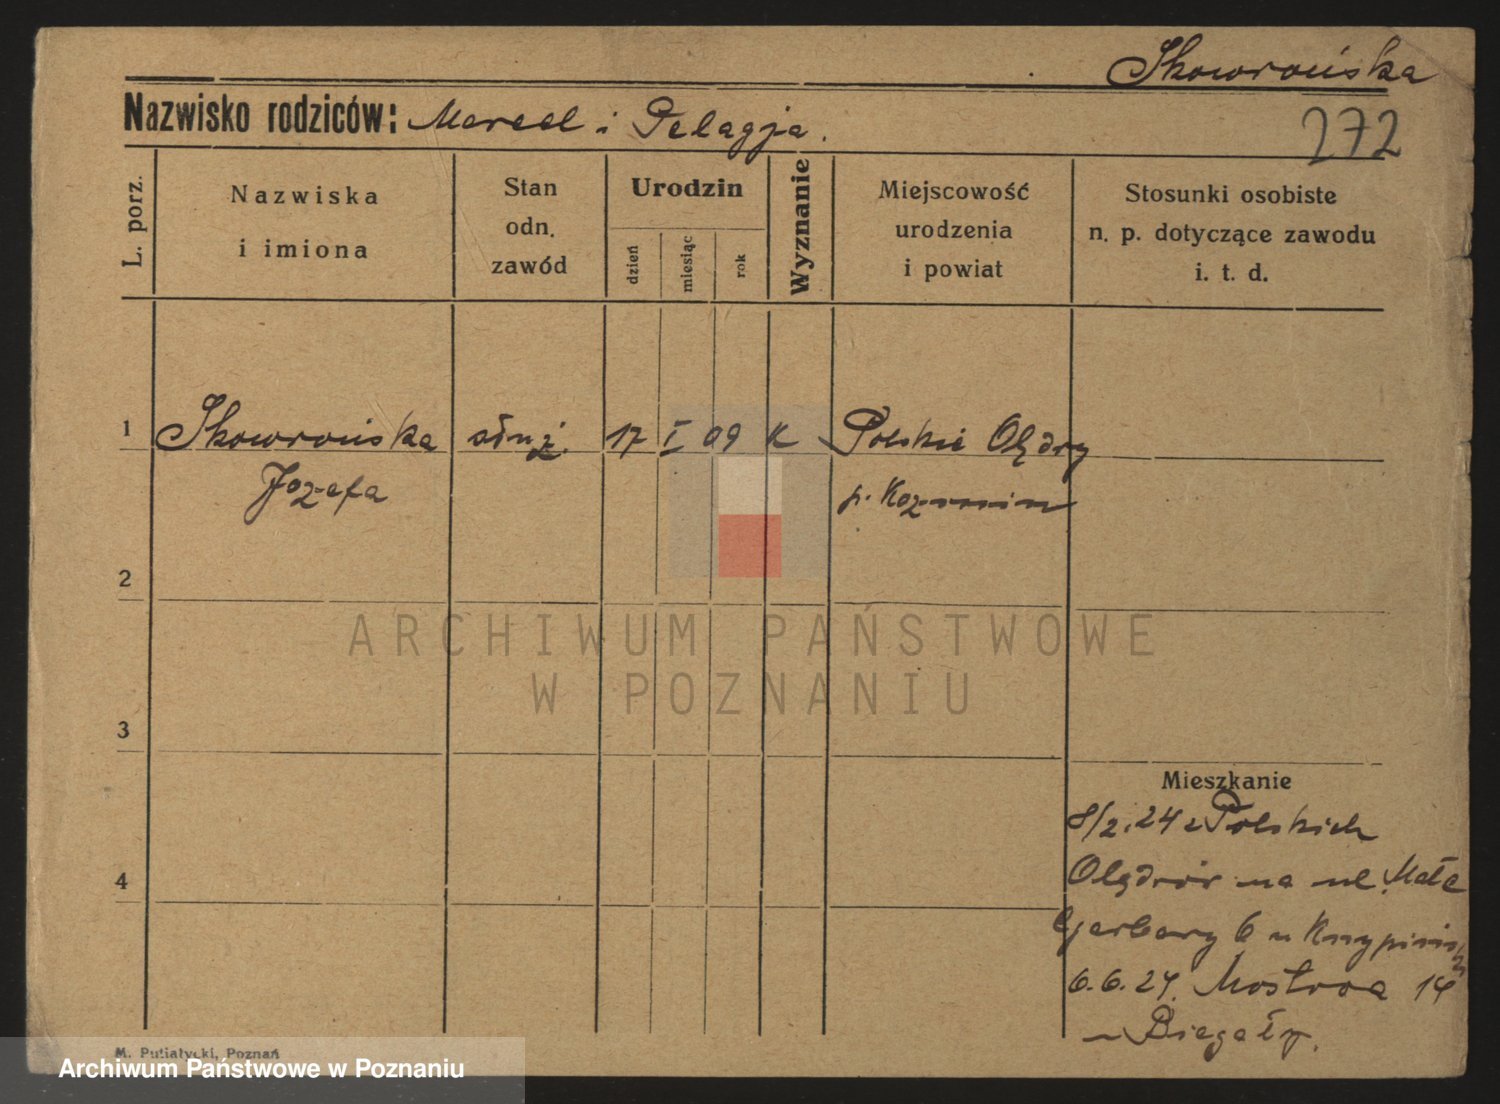 Skowrońska
Nazwisko rodziców: Marceli i Pelagja.
272
L. porz.
Nazwiska
i imiona
Stan
odn.
zawód
Urodzin
dzień
miesiąc
rok
Wyznanie
Miejscowość
urodzenia
i powiat
Stosunki osobiste
n. p. dotyczące zawodu
i. t. d.
1 Skowrońska służ. 17 I 09 K Polskie Olędry
Józefa p. Kozmin
2
ARCHIWUM PAŃSTWOWE
W POZNANIU
3
Mieszkanie
8/2.24 z Polskich
4
Olędrów na ul. Małe
Garbary 6 u
6.6.24. Mostowa 14
u Biegały.
M. Putiatycki, Poznań
Archiwum Państwowe w Poznaniu